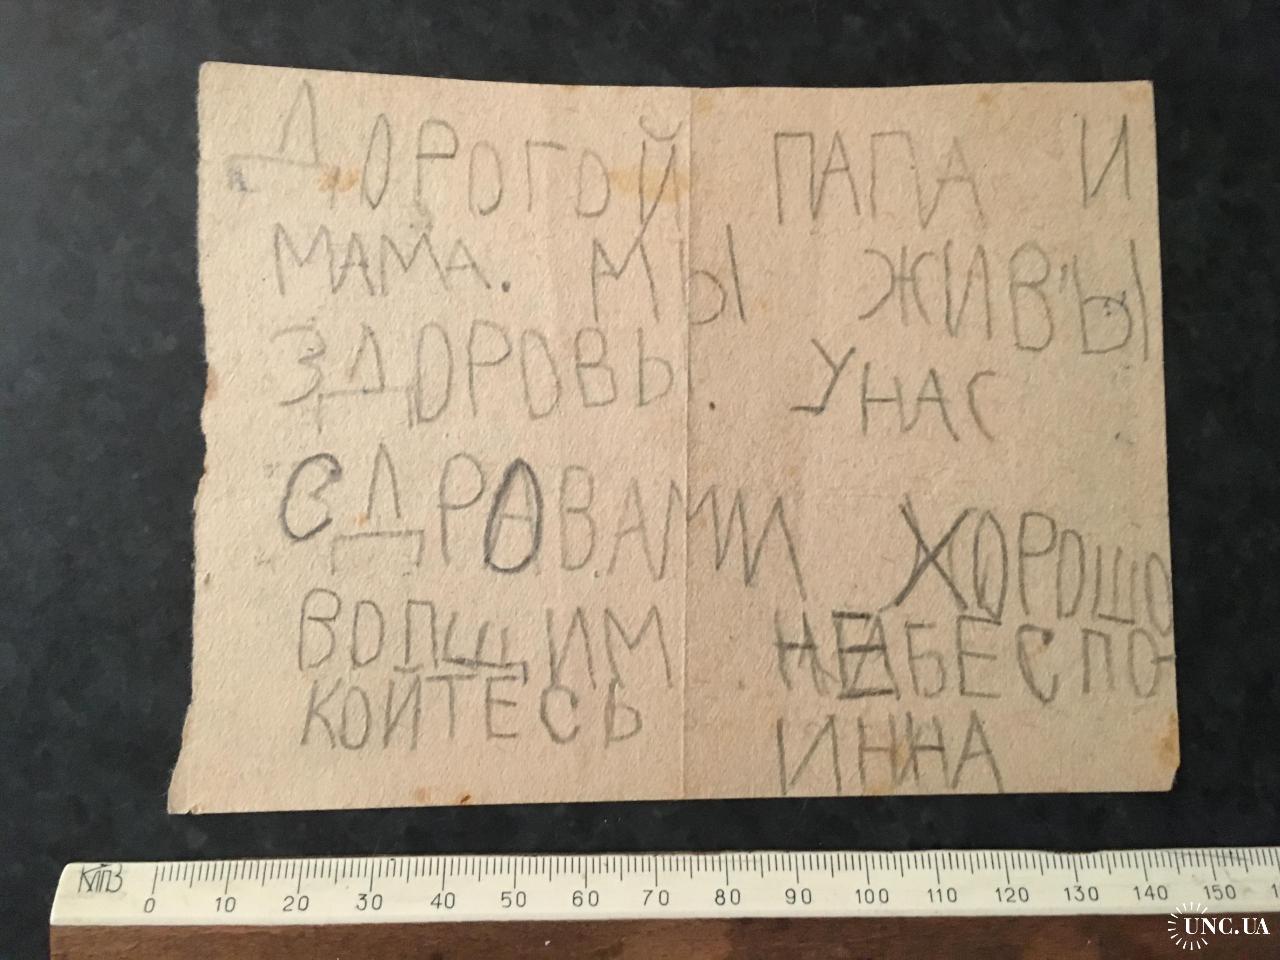 ДОРОГОЙ ПАПА И
МАМА. МЫ ЖИВЫ
ЗДОРОВЬ. УНАС
СДРОВАМИ ХОРОШО
ВОПЩИМ. НЕАБЕСПО-
КОЙТЕСЬ
ИННА
КПВ
0 10 20 30 40 50 60 70 80 90 100 110 120 130 140 150
UNC.UA